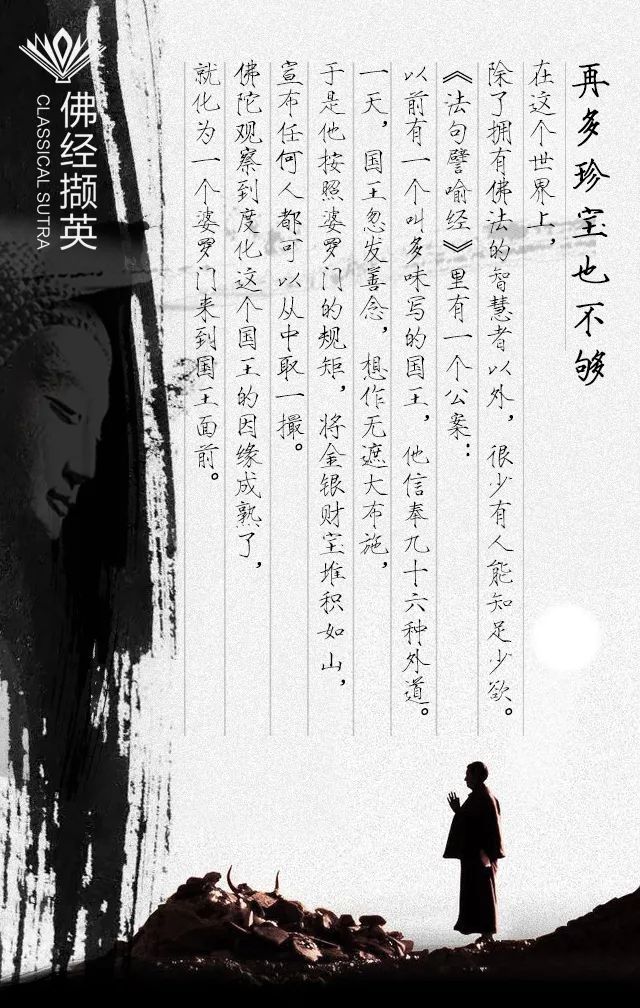 再多珍宝也不够
在这个世界上，
除了拥有佛法的智慧者以外，很少有人能知足少欲。
《法句譬喻经》里有一个公案：
以前有一个叫多味写的国王，他信奉九十六种外道。
一天，国王忽发善念，想作无遮大布施，
于是他按照婆罗门的规矩，将金银财宝堆积如山，
宣布任何人都可以从中取一撮。
佛陀观察到度化这个国王的因缘成熟了，
就化为一个婆罗门来到国王面前。
佛经撷英
CLASSICAL SUTRA